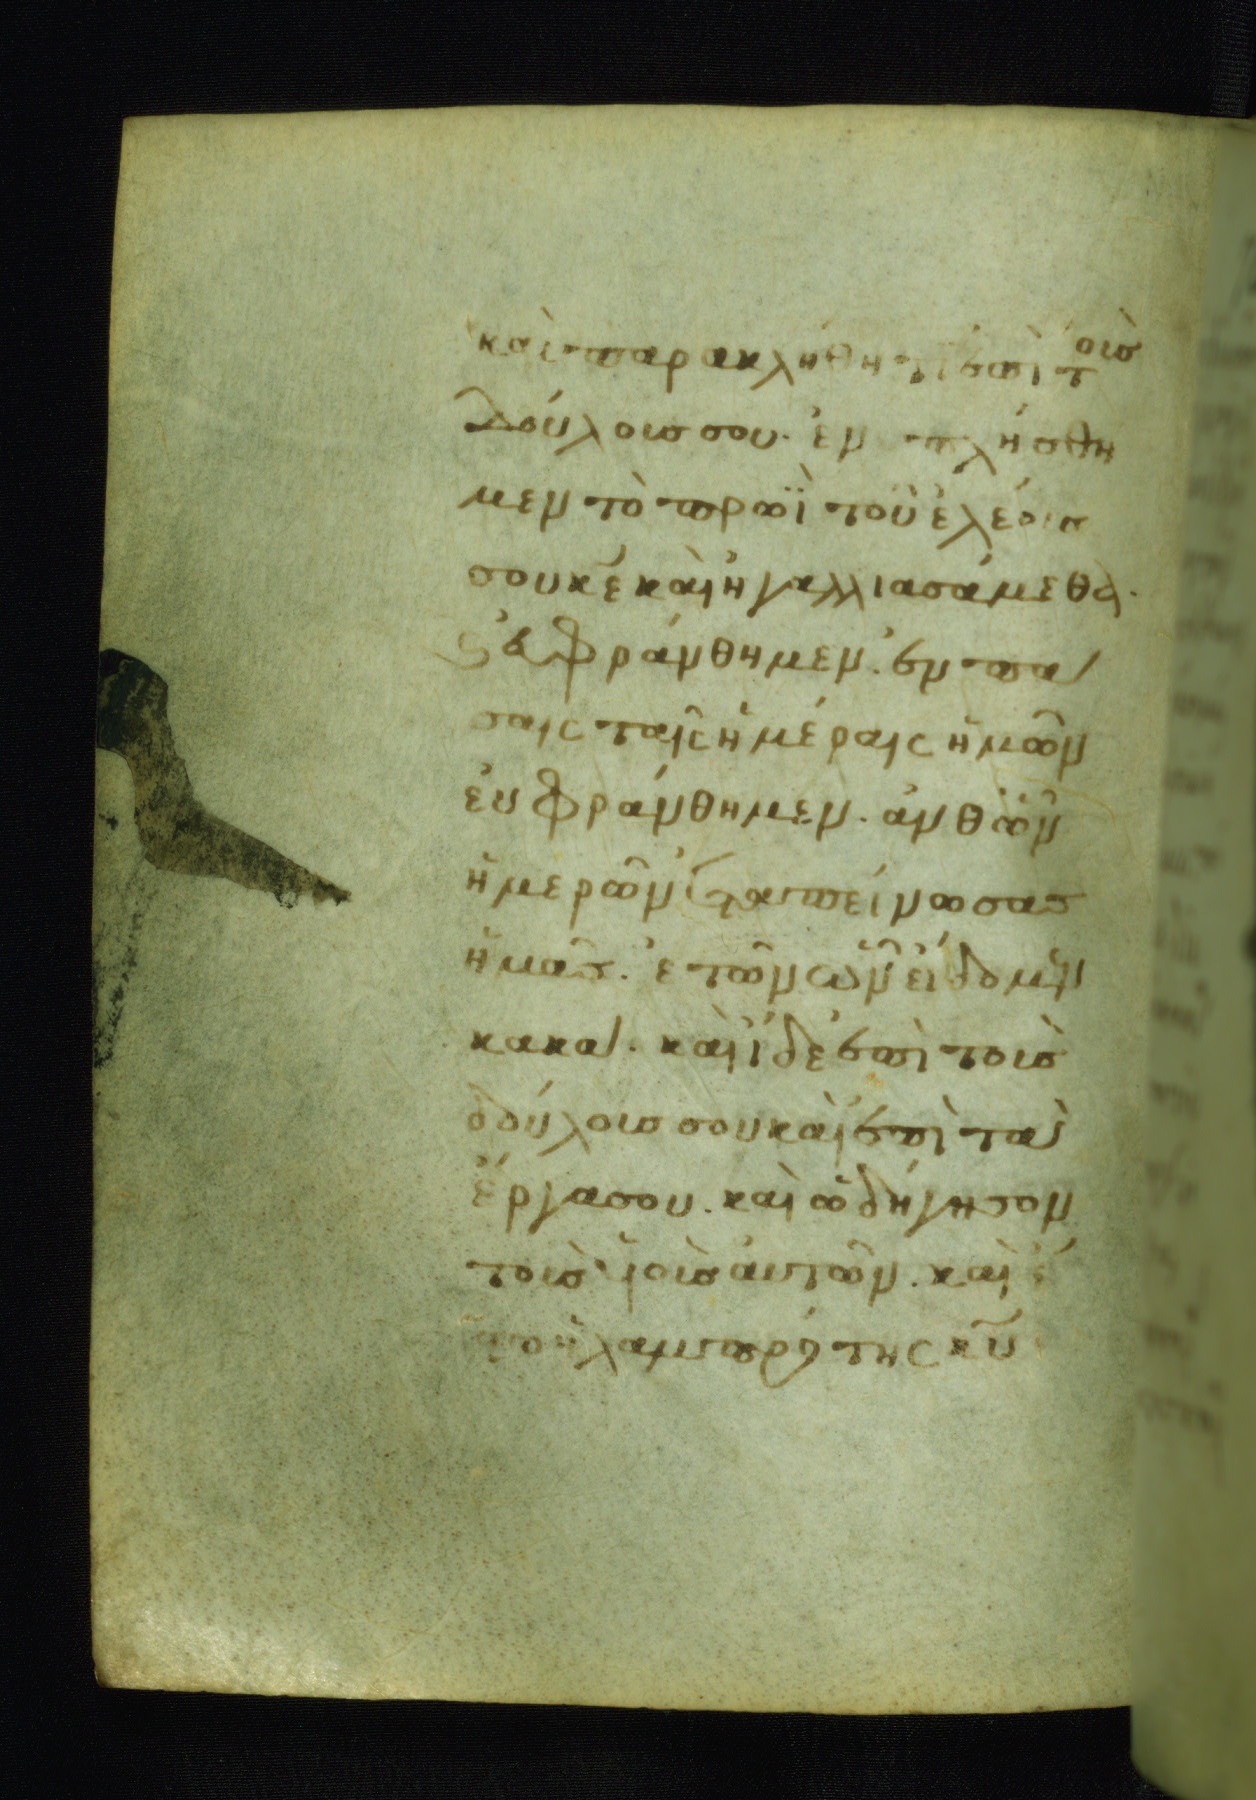 καὶ παρακλήθητι ἐπὶ τοῖς
δούλοις σου· ἐν επλήσθη
μεν τὸ πρωῒ τοῦ ἐλέους
σου κε καὶ ἠγαλλιασάμεθα·
καὶ εὐφράνθημεν· ἐν πα
σαις ταῖς ἡμέραις ἡμῶν
εὐφράνθημεν· ἀνθ ὧν
ἡμερῶν ἐταπείνωσας
ἡμᾶς· ἐτῶν ὧν εἴδομεν
κακα· καὶ ἴδε ἐπὶ τοὺς
δούλοις σου καὶ ἐπὶ τὰ
ἔργα σου· καὶ ὁδήγησον
τοὺς υἱοὺς αὐτῶν· καὶ ἔ
λαμπρότης κυ